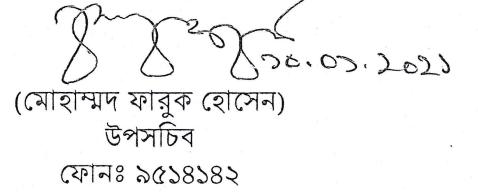 ১০.০১.২০২১
(মোহাম্মদ ফারুক হোসেন)
উপসচিব
ফোনঃ ৯৫১৪১৪২